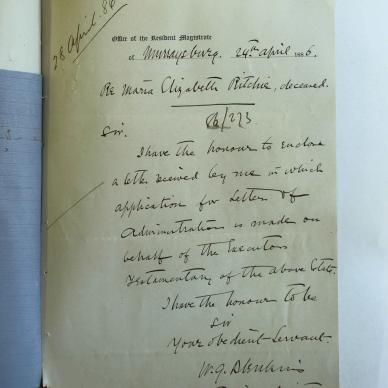 28 April. 86
Office of the Resident Magistrate
of Murraysburg. 24th April 1886.
Re Maria Elizabeth Ritchie, deceased.
Sir.
I have the honour to enclose
a letter received by me in which
application for Letters of
Administration is made on
behalf of the Executors
Testamentary of the above Estate.
I have the honour to be
Sir
Your obedient Servant.